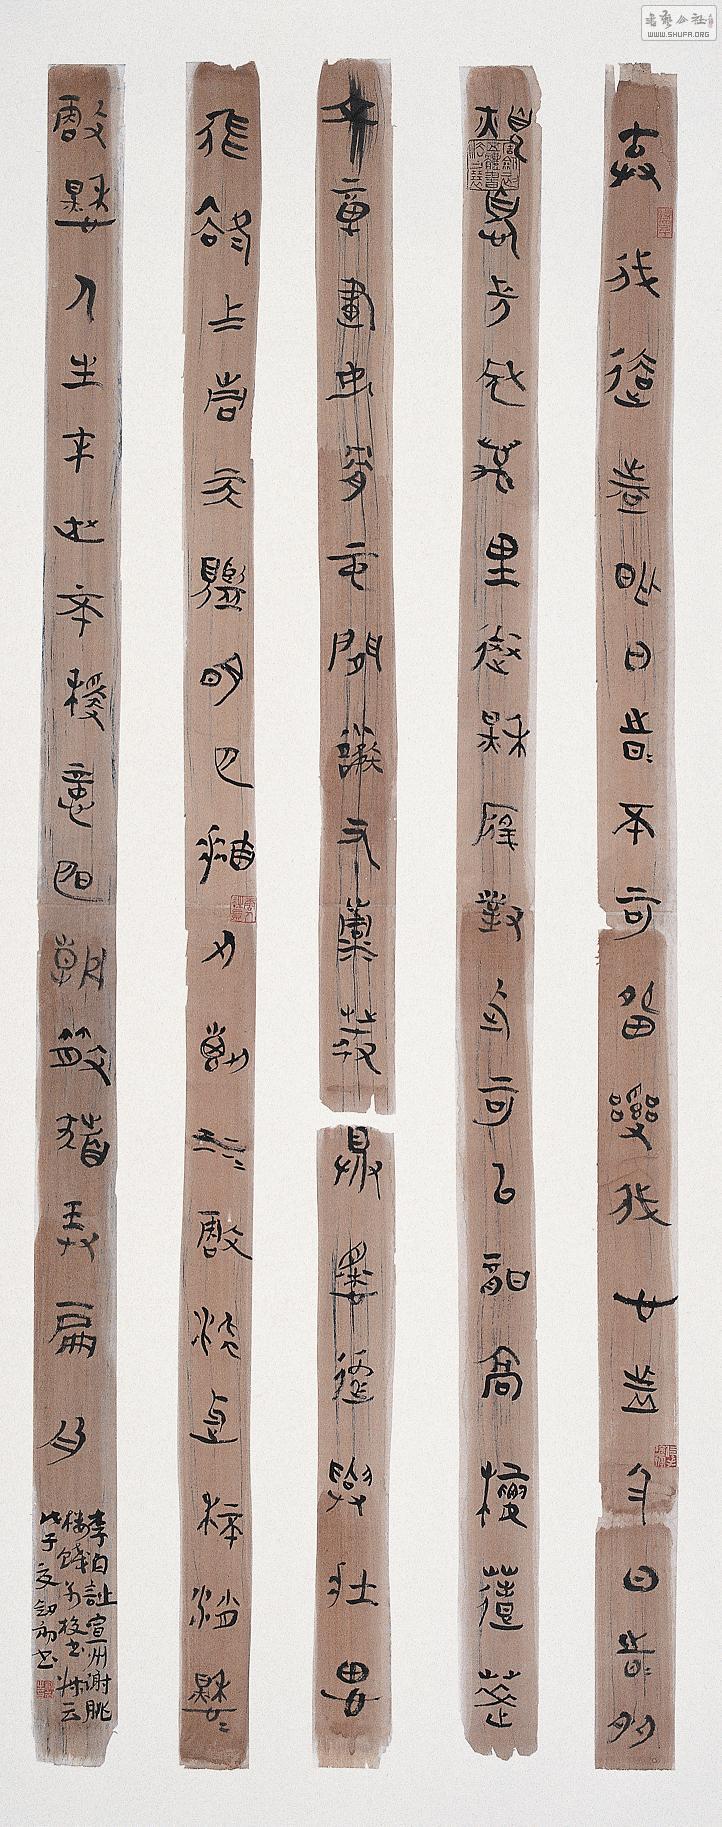 棄我去者昨日之日不可留亂我心者今日之日多
煩憂長風萬里送秋雁對此可以酣高樓蓬萊
文章建安骨中間小謝又清發俱懷逸興壯思
飛欲上青天攬明月抽刀斷水水更流舉杯銷愁愁
更愁人生在世不稱意明朝散髮弄扁舟
李白詩宣州谢朓
楼餞別校书叔云
戊子
书
WWW.SHUFA.ORG